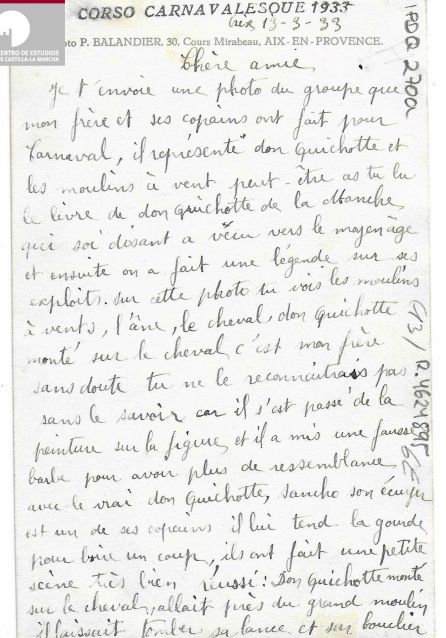 CENTRO DE ESTUDIOS
DE CASTILLA-LA MANCHA
CORSO CARNAVALESQUE 1933
Aix 13-3-33
Photo P. BALANDIER, 30, Cours Mirabeau, AIX-EN-PROVENCE.
Chère amie
Je t'envoie une photo du groupe que
mon frère et ses copains ont fait pour
Carnaval, il représente don quichotte et
les moulins à vent peut-être as tu lu
le livre de don quichotte de la Manche,
qui soi disant a vécu vers le moyen âge
et ensuite on a fait une légende sur ses
exploits. sur cette photo tu vois les moulins
à vents, l'âne, le cheval, don quichotte
monté sur le cheval c'est mon frère
sans doute tu ne le reconnaitrais pas
sans le savoir car il s'est passé de la
peinture sur la figure et il a mis une fausse
barbe pour avoir plus de ressemblance
avec le vrai don quichotte, sancho son écuyer
est un de ses copains il lui tend la gourde
pour boire un coup, ils ont fait une petite
scène très bien réussi: Don quichotte monté
sur le cheval, allait près du grand moulin
il laissait tomber sa lance et son bouclier
R.4624895